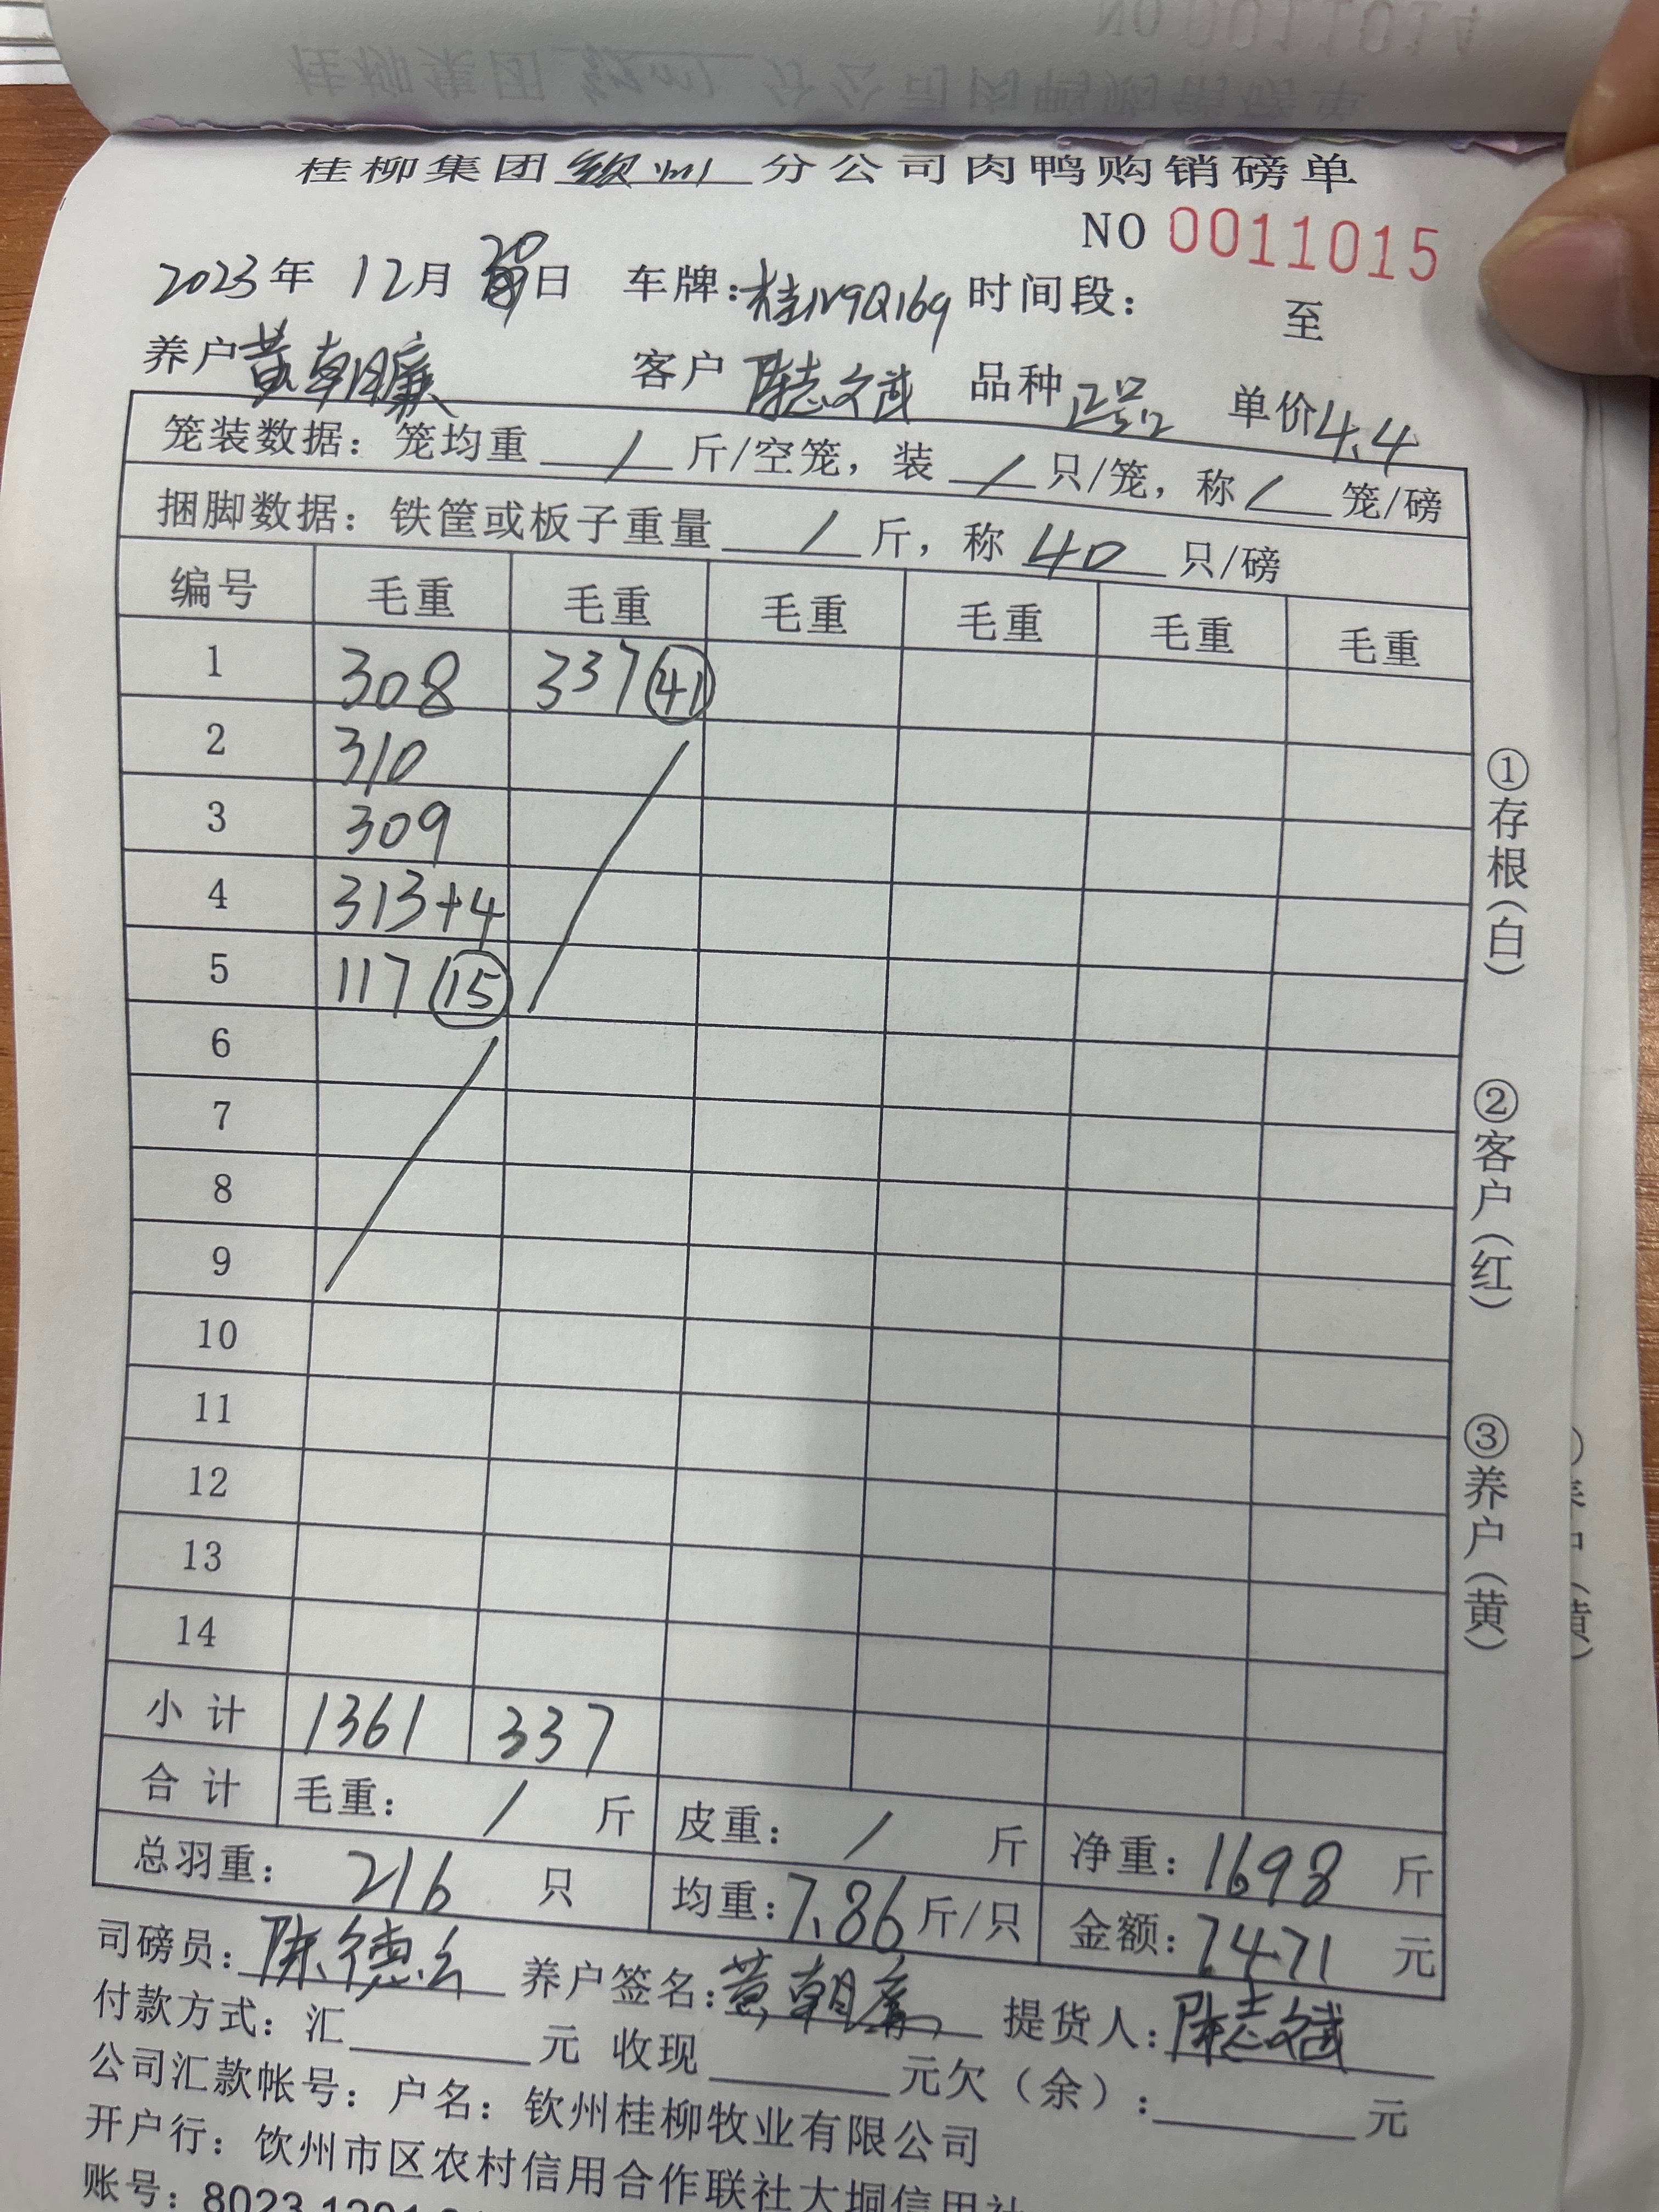 桂柳集团钦州分公司肉鸭购销磅单
NO 0011015
2023年 12月 20日 车牌:桂N9Q169 时间段: 至
养户 黄朝廉 客户 陈志斌 品种 正品 单价 4.4
笼装数据: 笼均重 / 斤/空笼, 装 / 只/笼, 称 / 笼/磅
捆脚数据: 铁筐或板子重量 / 斤, 称 40 只/磅
编号 毛重 毛重 毛重 毛重 毛重 毛重
1 308 337 ㊶
2 310
3 309
4 313+4
5 117 ⑮
6
7
8
9
10
11
12
13
14
小计 1361 337
合计 毛重: / 斤 皮重: / 斤 净重: 1698 斤
总羽重: 216 只 均重: 7.86 斤/只 金额: 7471 元
司磅员: 陈德 养户签名: 黄朝廉 提货人: 陈志斌
付款方式: 汇 元 收现 元欠（余）: 元
公司汇款帐号: 户名: 钦州桂柳牧业有限公司
开户行: 钦州市区农村信用合作联社大垌信用社
账号: 8023 1201
①存根(白)
②客户(红)
③养户(黄)